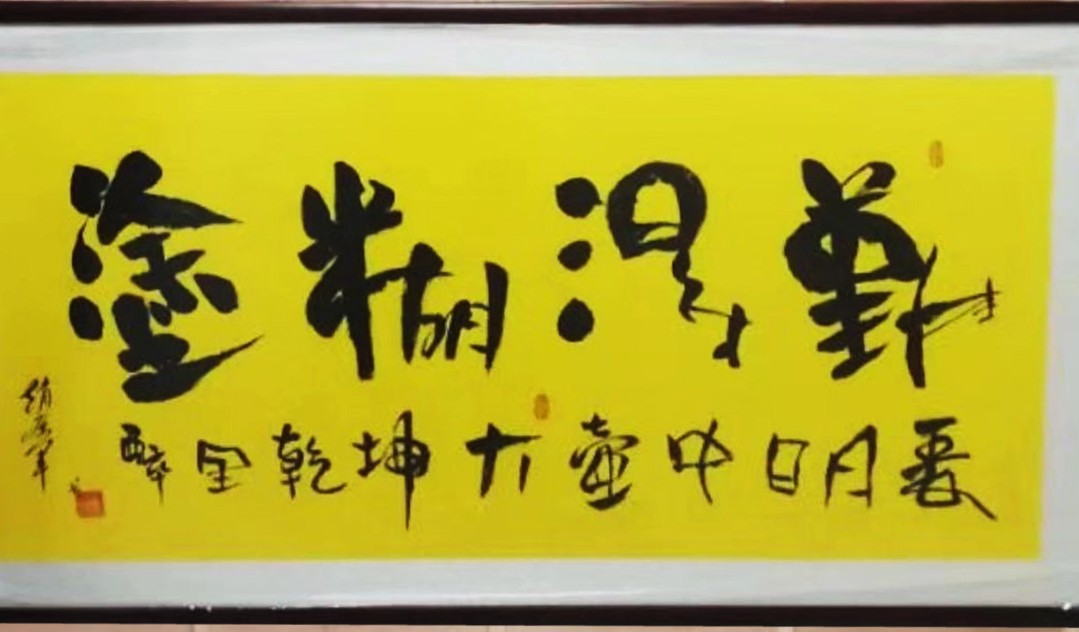 難得糊塗
醉里乾坤大壺中日月長